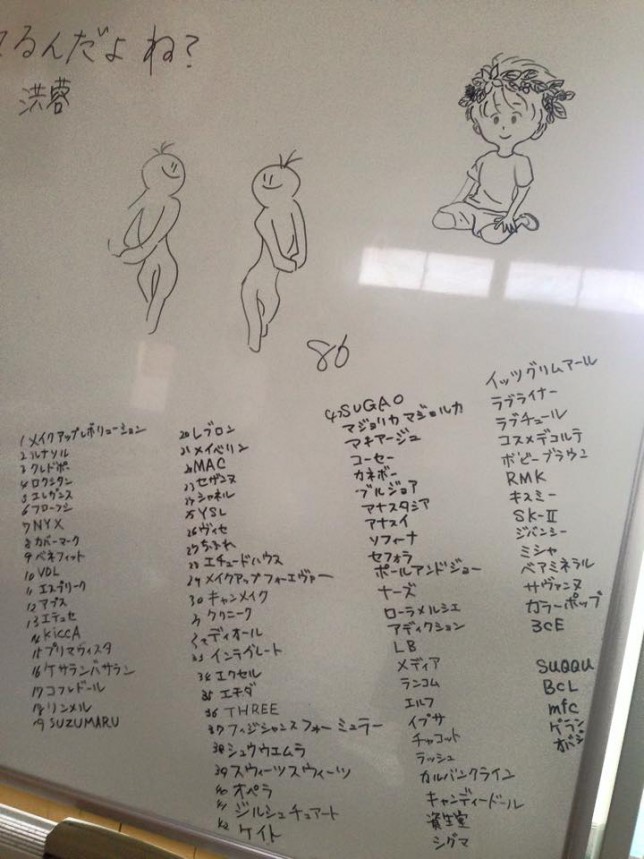 てるんだよね？
洪蓉
86
1 メイクアップレボリューション
2 ルナソル
3 クレドポー
4 ロクシタン
5 エレガンス
6 フローフシ
7 NYX
8 カバーマーク
9 ベネフィット
10 VDL
11 エスプリーク
12 アプス
13 エテュセ
14 KiCCA
15 プリマヴィスタ
16 ケサランパサラン
17 コフレドール
18 リンメル
19 SUZUMARU
20 レブロン
21 メイベリン
22 MAC
23 セザンヌ
24 シャネル
25 YSL
26 ヴィセ
27 ちふれ
28 エチュードハウス
29 メイクアップフォーエヴァー
30 キャンメイク
31 クリニーク
32 ディオール
33 インテグレート
34 エクセル
35 エチダ
36 THREE
37 フィジシャンズフォーミュラー
38 シュウウエムラ
39 スウィーツスウィーツ
40 オペラ
41 ジルシュチュアート
42 ケイト
43 SUGAO
マジョリカマジョルカ
マキアージュ
コーセー
カネボー
ブルジョア
アナスタシア
アナスイ
ソフィーナ
セフォラ
ポールアンドジョー
ナーズ
ローラメルシエ
アディクション
LB
メディア
ランコム
エルフ
イプサ
チャコット
ラッシュ
カルバンクライン
キャンディードール
資生堂
シグマ
イッツグリムアール
ラブライナー
ラブチュール
コスメデコルテ
ボビーブラウン
RMK
キスミー
SK-II
ジバンシー
ミシャ
ベアミネラル
サヴァンヌ
カラーポップ
3CE
SUQQU
BCL
mfc
ゲラン